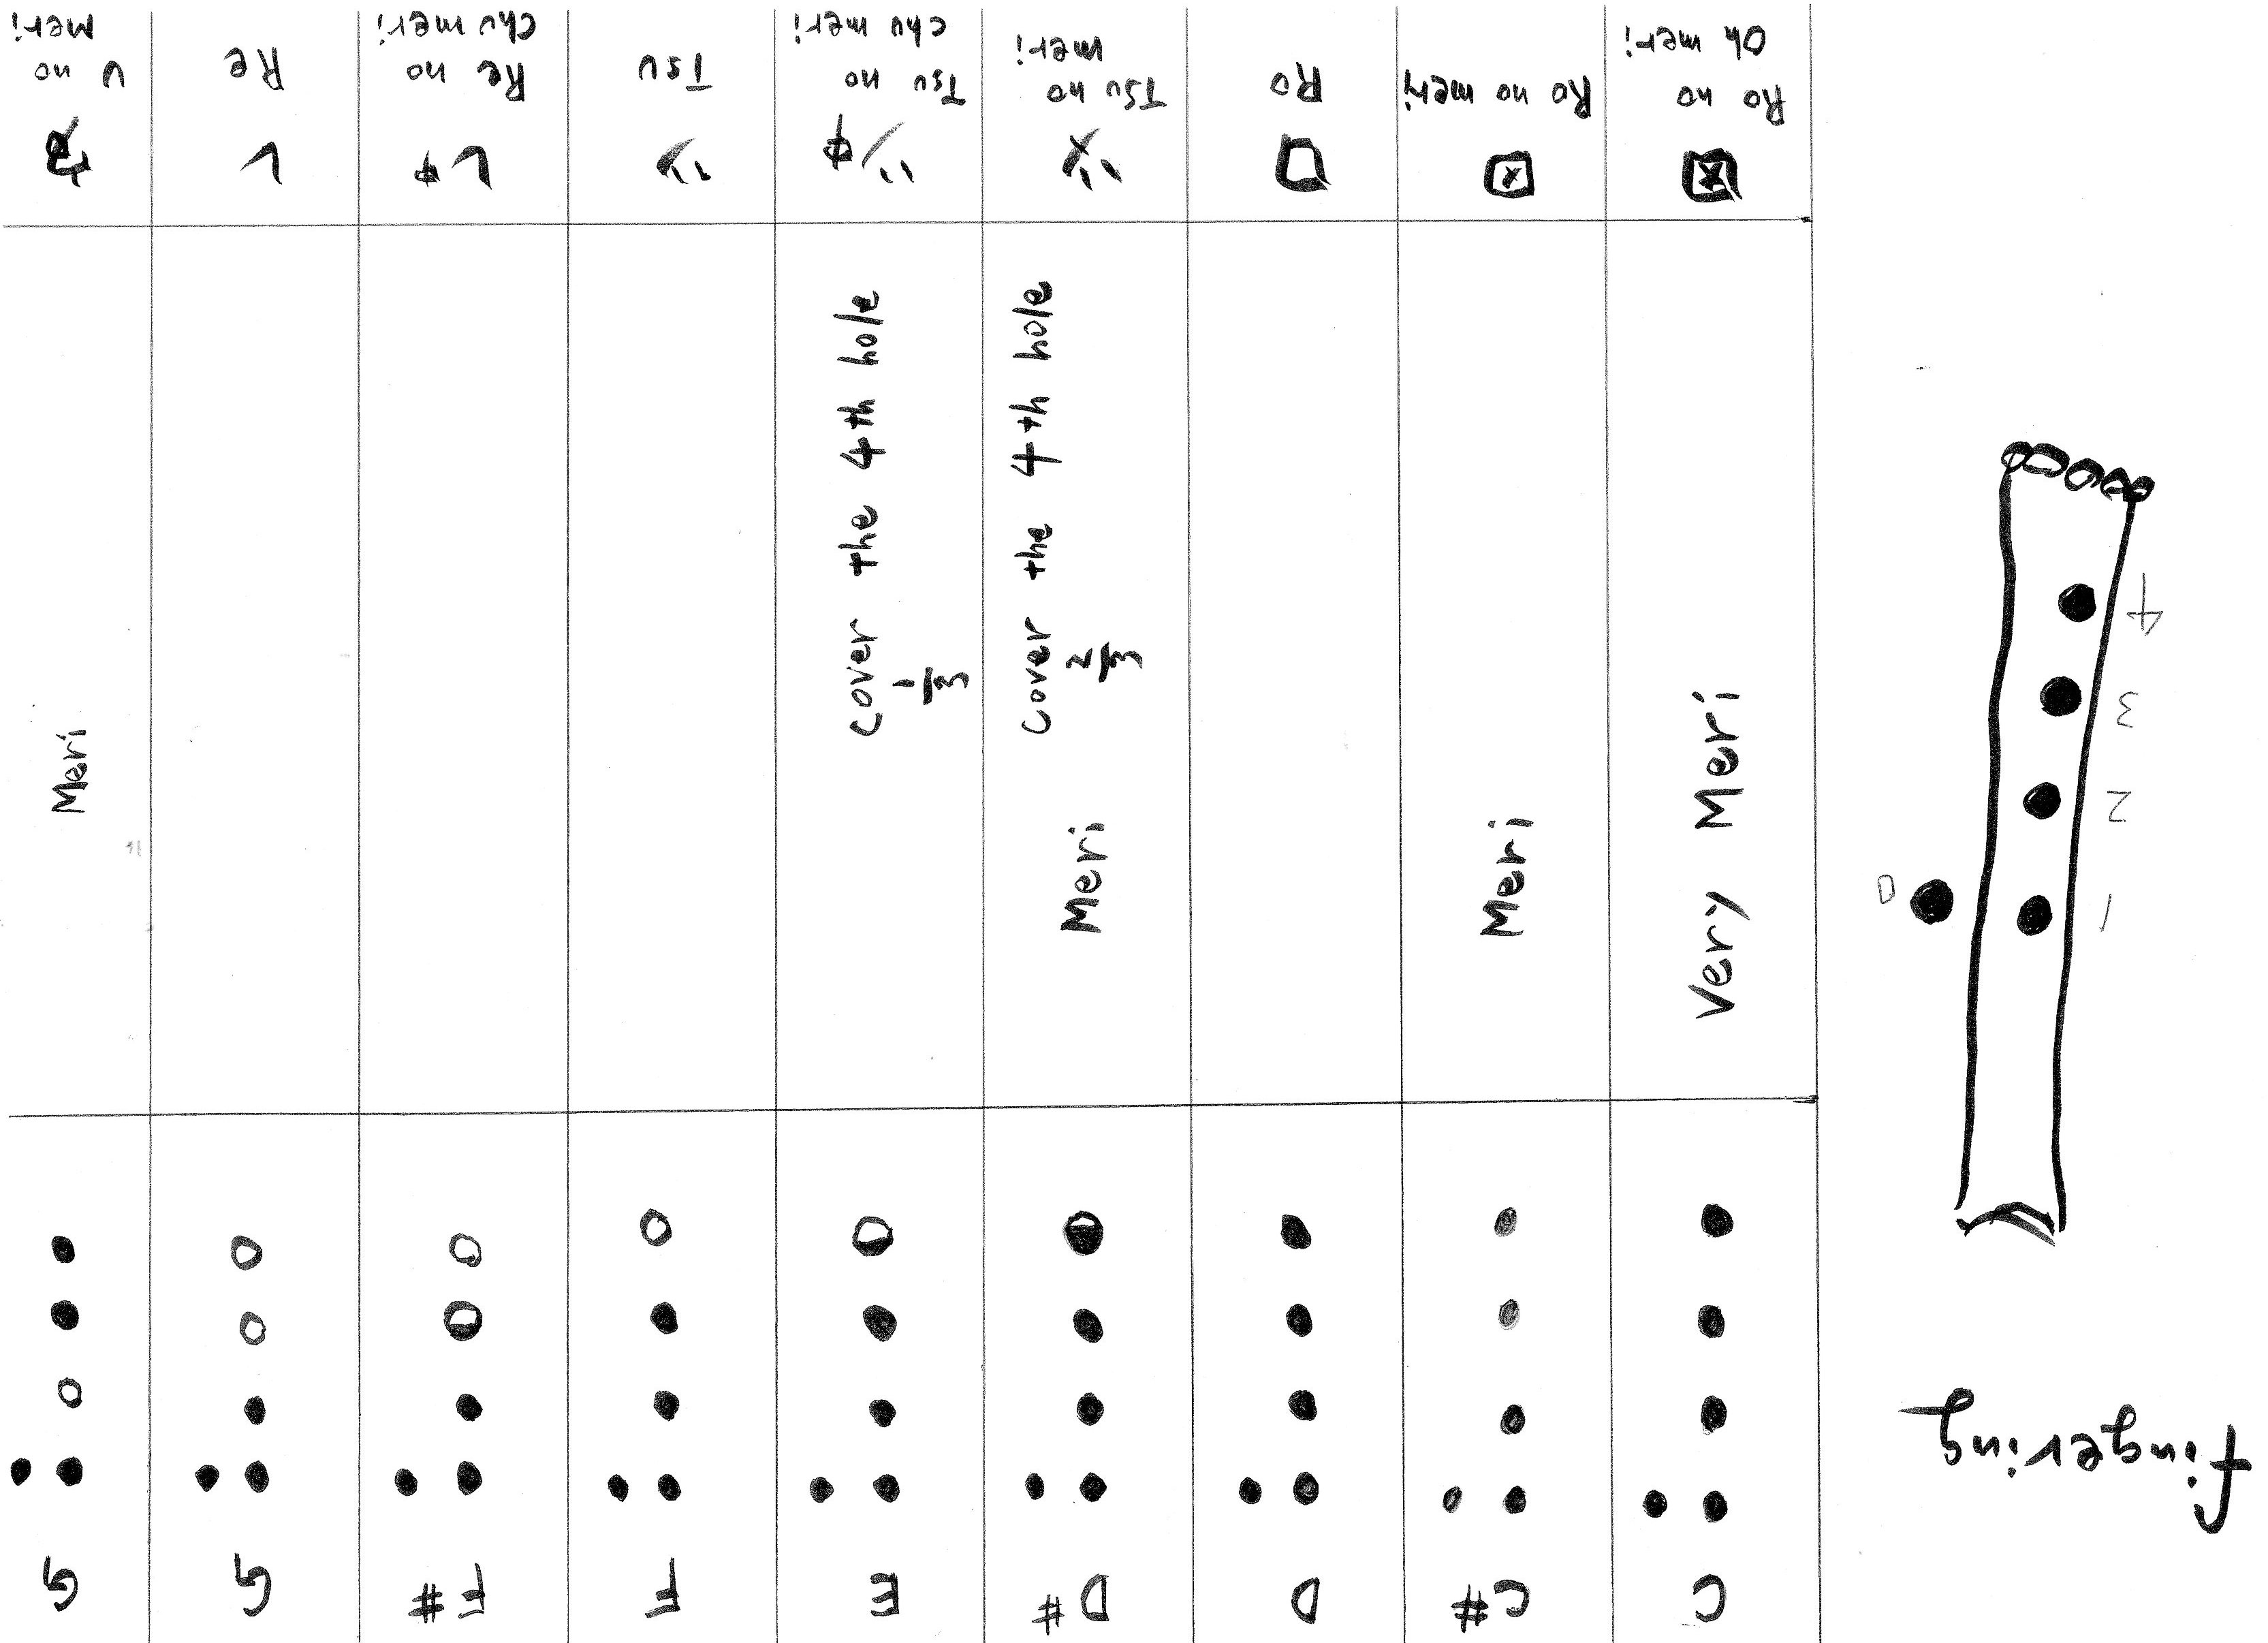 Fingering
1 0
2
3
4
C C# D D# E F F# G G
Very Meri
Meri
Meri
Cover the 4th hole
2/3
Cover the 4th hole
1/3
Meri
ロ
ツ
ツ中
ツ
レ中
レ
Ro no
Oh meri
Ro no meri
Ro
Tsu no
meri
Tsu no
chu meri
Tsu
Re no
Chu meri
Re
U no
Meri